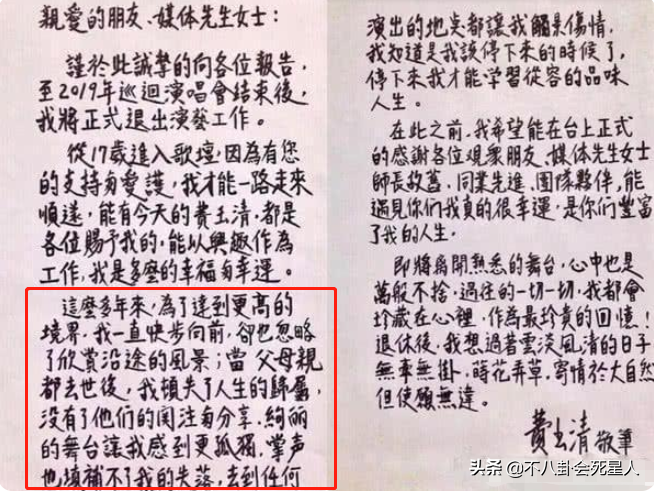 親愛的朋友、媒体先生女士：
謹於此誠摯的向各位報告，
至2019年巡迴演唱會結束後，
我將正式退出演藝工作。
從17歲進入歌壇，因為有您
的支持與愛護，我才能一路走來
順遂，能有今天的費玉清，都是
各位賜予我的，能以興趣作為
工作，我是多麼的幸福與幸運。
這麼多年來，為了達到更高的
境界，我一直快步向前，卻也忽略
了欣賞沿途的風景；當父母親
都去世後，我頓失了人生的歸屬，
沒有了他們的関注與分享，絢丽
的舞台讓我感到更孤獨，掌声
也填補不了我的失落，去到任何
演出的地点都讓我觸景傷情，
我知道是我該停下來的時候了，
停下來我才能学習從容的品味
人生。
在此之前，我希望能在台上正式
的感謝各位观眾朋友、媒体先生女士
師長故舊、同業先進、團隊夥伴，能
遇見你们我真的很幸運，是你们豐富
了我的人生。
即將离開熟悉的舞台，心中也是
萬般不捨，過往的一切一切，我都會
珍藏在心裡，作為最珍貴的回憶！
退休後，我想過著雲淡風清的日子
無牽無掛，蒔花弄草，寄情於大自然
但使願無違。
費玉清 敬筆
头条 @不八卦会死星人